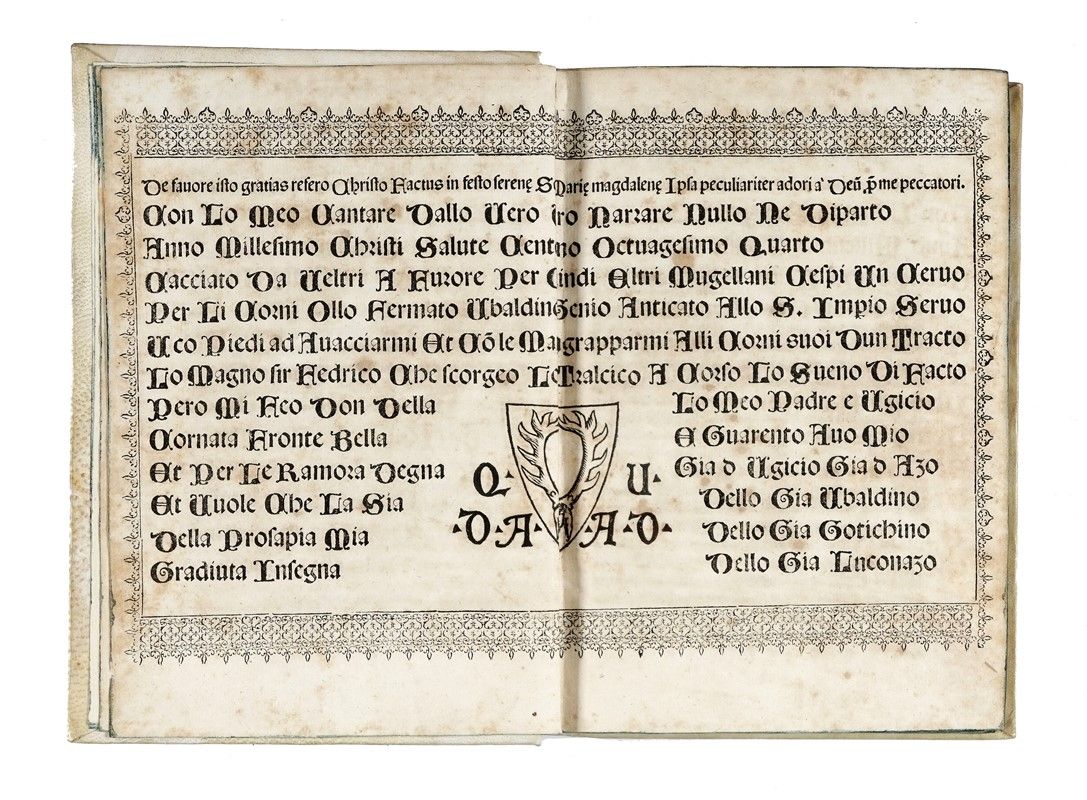 De favore isto gratias refero Christo Factus in festo serenę Marię magdalenę Ipsa peculiariter adori a' Deū p̄ me peccatori.
Con Lo Meo Cantare Dallo Uero Narrare Nullo Ne Diparto
Anno Millesimo Christi Salute Octuagesimo Quarto
Cacciato Da Ueltri A Furore Per Eltri Mugellani Cespi Un Ceruo
Per Li Corni Ollo Fermato Anticato Allo S. Impio Seruo
U co Piedi ad Auacciarmi Et Cō le Alli Corni suoi Dun Tracto
Lo Magno sir Fedrico Che scorgeo A Corso Lo Sueno Di Facto
Pero Mi Feo Don Della
Cornata Fronte Bella
Et Per Le Ramora Degna
Et Uuole Che La Sia
Della Prosapia Mia
Gradiuta Insegna
Q· U·
·D·A·A·D·
Lo Meo Padre e Ugicio
E Guarento Auo Mio
Gia d Ugicio Gia d Azo
Dello Gia Ubaldino
Dello Gia Gotichino
Dello Gia Luconazo